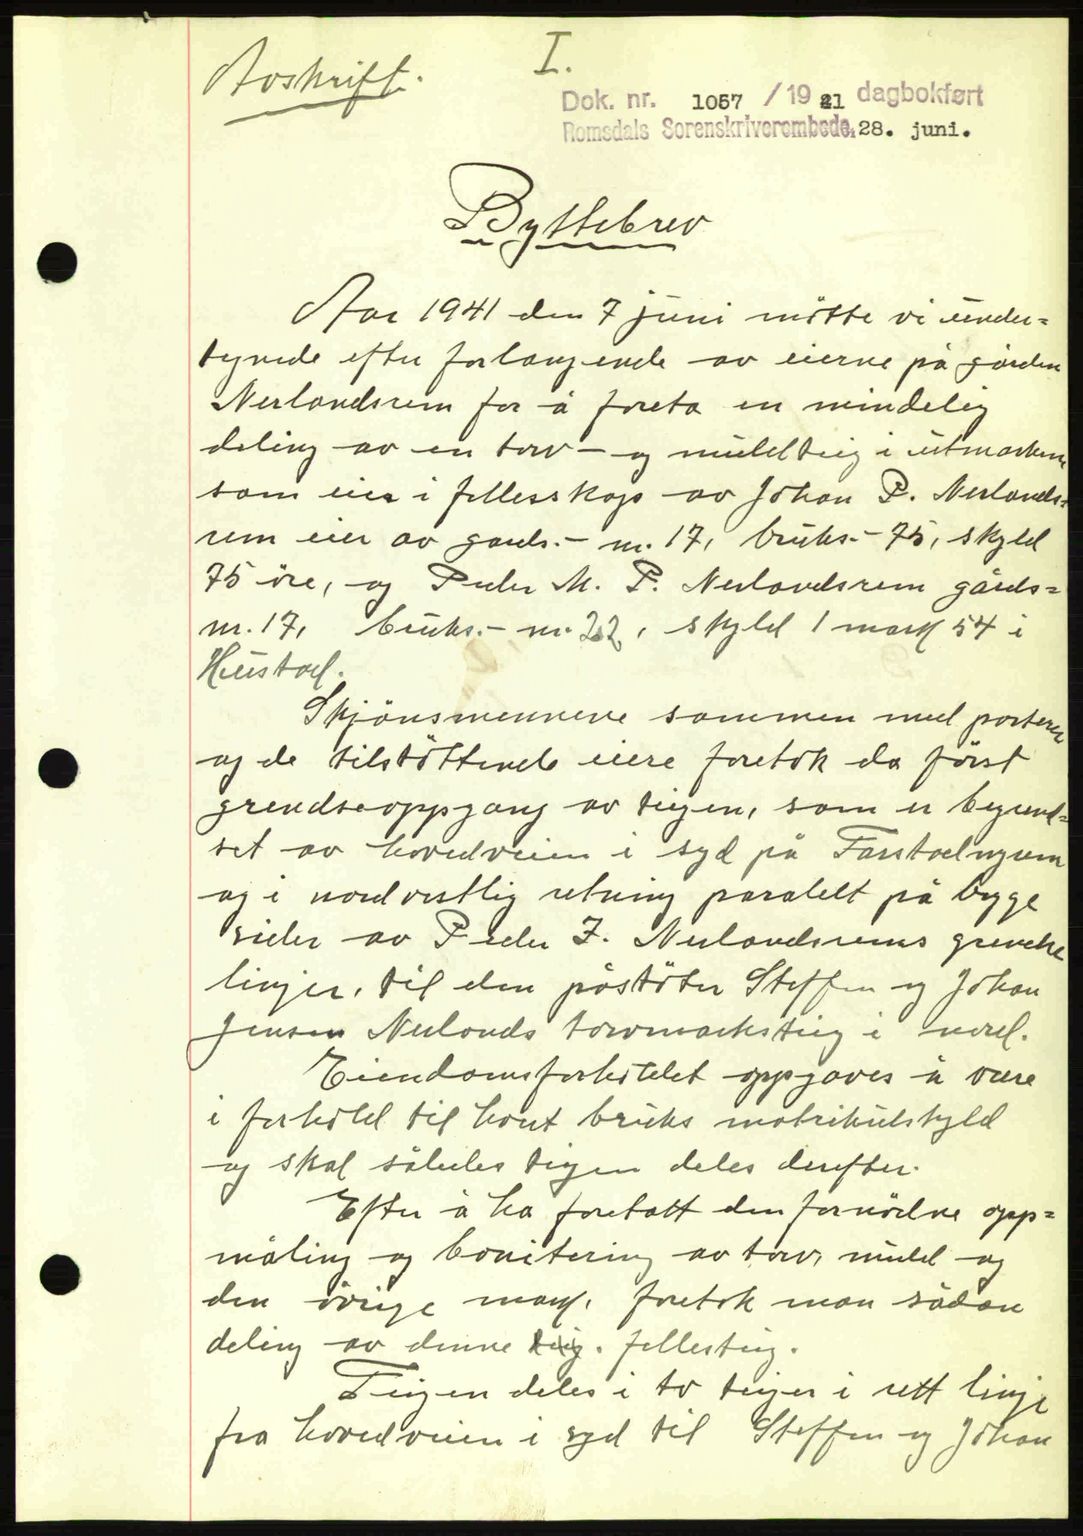 Avskrift.
I.
Dok. nr. 1057 / 19 41 dagbokført
Romsdals Sorenskriverembede, 28. juni.
Byttebrev
Aar 1941 den 7 juni mötte vi under=
tegnede efter forlangende av eierne på gården
Nerlandsrem for å foreta en mindelig
deling av en torv- og muldteig i utmarken
som eies i fellesskap av Johan P. Nerlands=
rem eier av gards.- nr. 17, bruks.- 75, skyld
75 öre, og Peder M. P. Nerlandsrem gårds=
nr. 17, bruks.- nr. 22, skyld 1 mark 54 i
Hustad.
Skjönsmennene sammen med parterne
og de tilstöttende eiere foretok da först
grendseoppgang av teigen, som er begrend=
set av hovedveien i syd på Farstad
og i nordvestlig retning paralelt på begge
sider av Peder Z. Nerlandsrems grendse
linjer, til den påstöter Steffen og Johan
Jensen Nerlands torvmarksteig i nord.
Eiendomsforholdet oppgaves å være
i forhold til hvert bruks matrikulskyld
og skal således teigen deles derefter.
Efter å ha foretatt den fornödne opp=
måling og bonitering av torv, muld og
den övrige mark, foretok man sådan
deling av denne teig. fellesteig.
Teigen deles i to teiger i rett linje
fra hovedveien i syd til Steffen og Johan